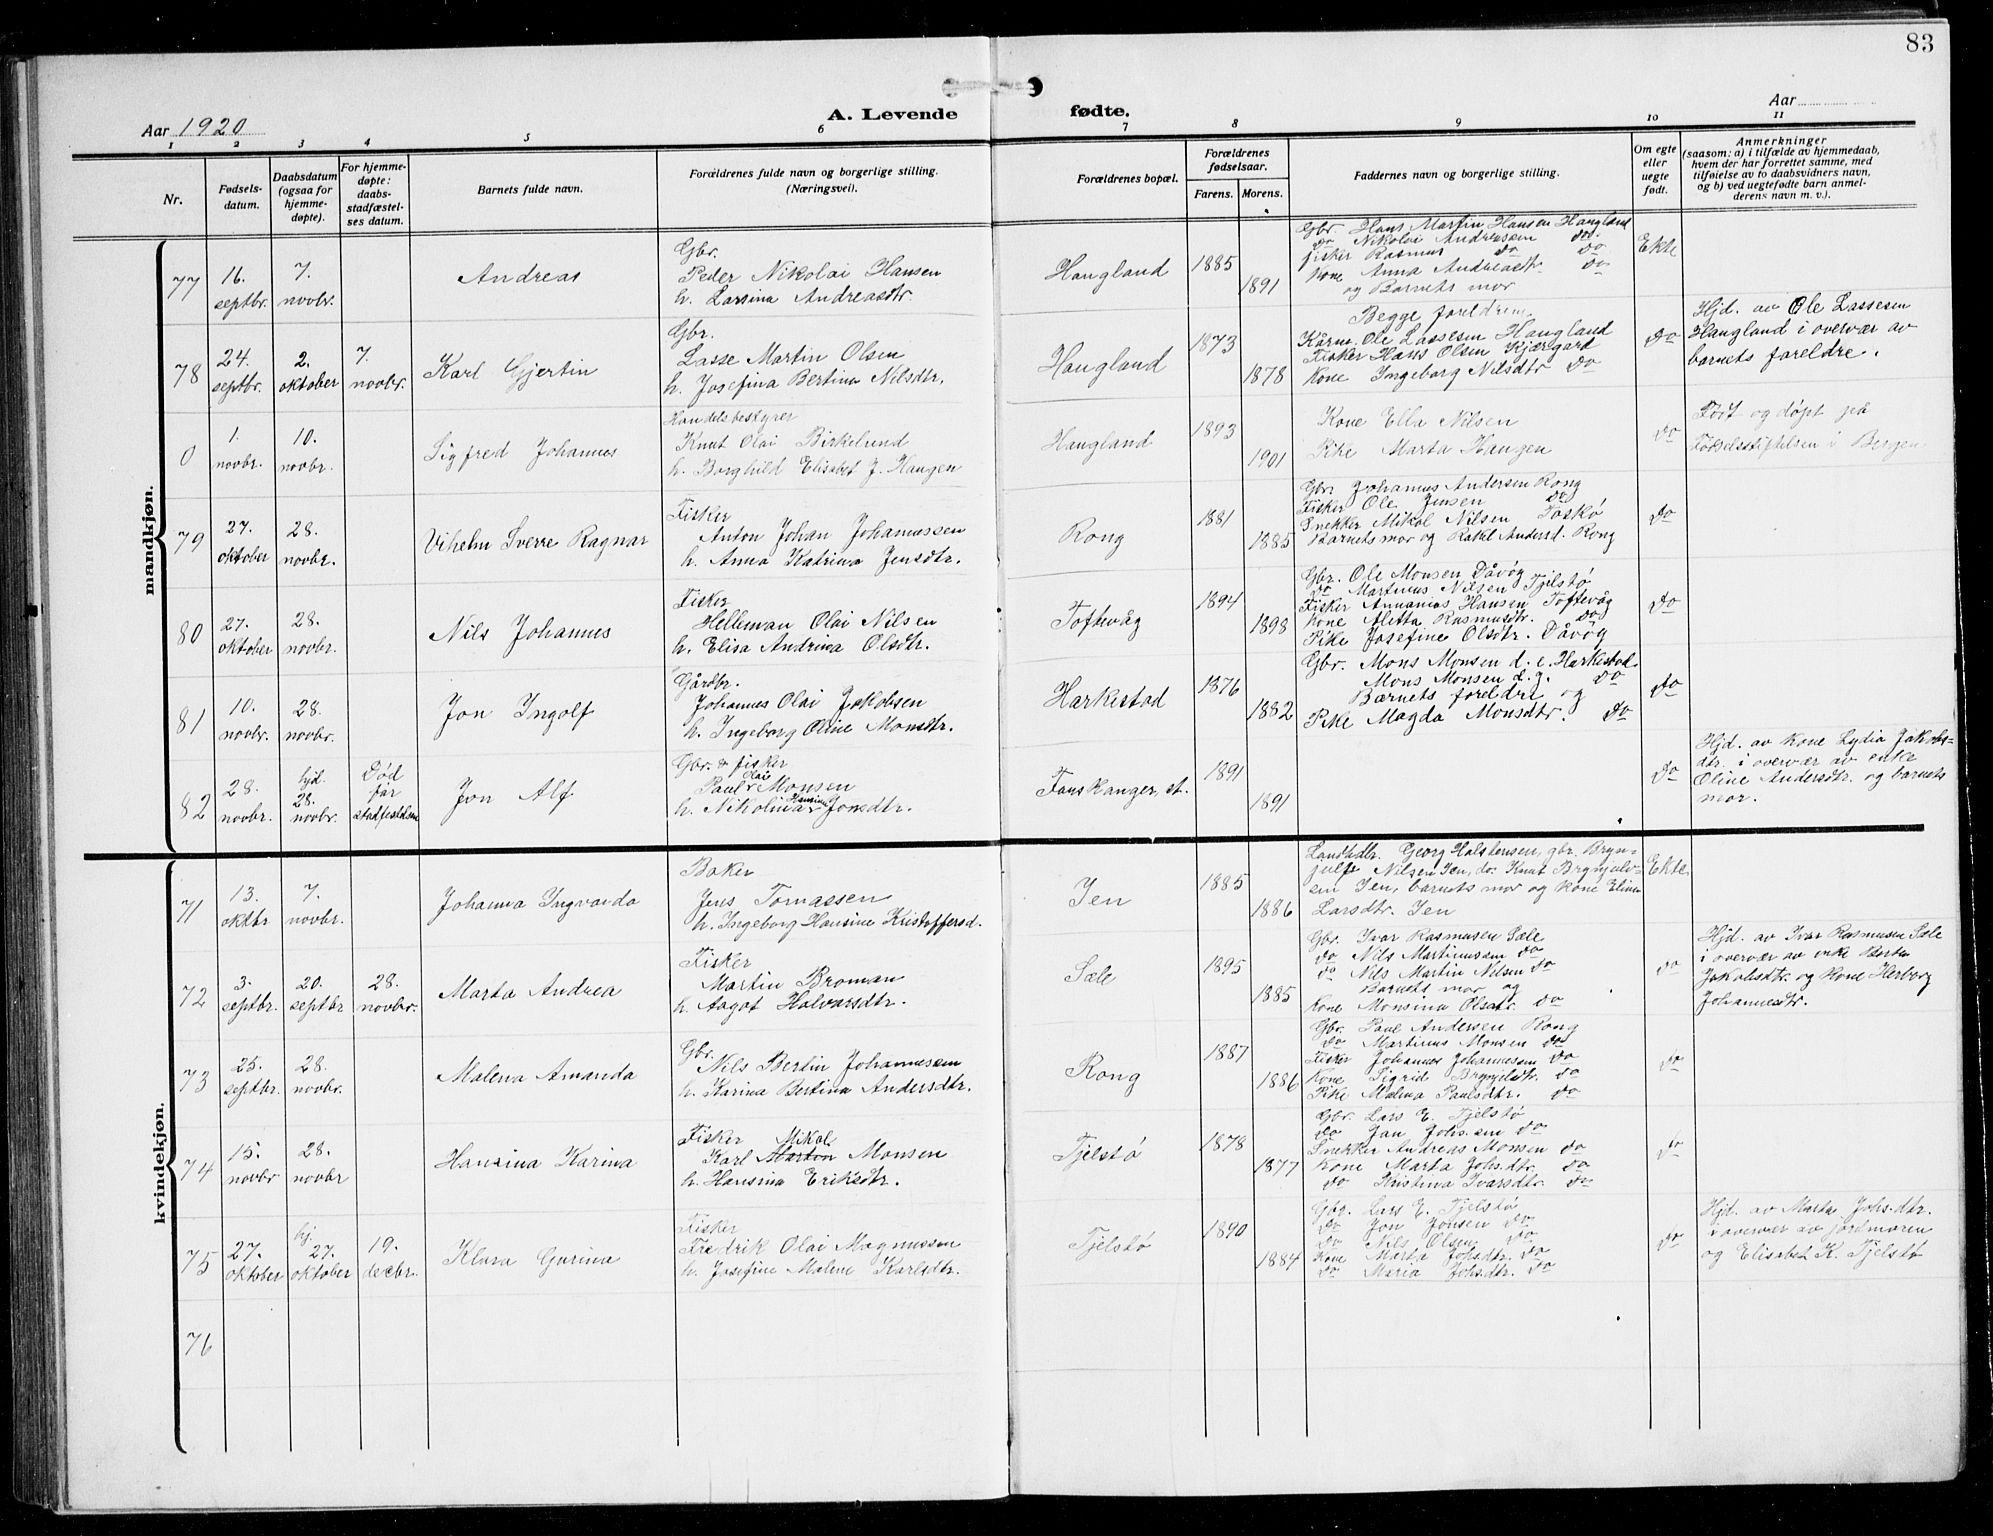 83
A. Levende fødte.
Aar 1920
Aar
1 2 3 4 5 6 7 8 9 10 11
Nr.
Fødsels-
datum.
Daabsdatum
(ogsaa for
hjemme-
døpte).
For hjemme-
døpte:
daabs-
stadfæstel-
ses datum.
Barnets fulde navn.
Forældrenes fulde navn og borgerlige stilling.
(Næringsvei).
Forældrenes bopæl.
Forældrenes
fødselsaar.
Farens. Morens.
Faddernes navn og borgerlige stilling.
Om egte
eller
uegte
født.
Anmerkninger
(saasom: a) i tilfælde av hjemmedaab,
hvem der har forrettet samme, med
tilføielse av to daabsvidners navn,
og b) ved uegtefødte barn anmel-
derens navn m. v.).
mandkjøn.
77
16.
septbr.
7.
novbr.
Andreas
Gbr.
Peder Nikolai Hansen
h. Larsina Andreasdtr.
Haugland
1885
1891
Gbr. Hans Martin Hansen Haugland
do Nikolai Andreassen do
fisker Rasmus do do
kone Anna Andreasdtr do
og Barnets mor
Ekte
78
24.
septbr.
2.
oktober
7.
novbr.
Karl Gjertin
Gbr.
Lasse Martin Olsen
h. Josefina Bertina Nilsdtr.
Haugland
1873
1878
Begge foreldrene
Ole Lassesen Haugland
Fisker Hans Olsen Kjærgard
Kone Ingeborg Nilsdtr do
do
Hjd. av Ole Lassesen
Haugland i overvær av
barnets foreldre.
0
1.
novbr.
10.
novbr.
Sigfred Johannes
Handelsbestyrer
Knut Olai Birkelund
h. Borghild Elisabet J. Haugen
Haugland
1893
1901
Kone Ella Nilsen
Pike Marta Haugen
do
Født og døpt på
Fødselsstiftelsen i Bergen
79
27.
oktober
28.
novbr.
Vihelm Sverre Ragnar
Fisker
Anton Johan Johannessen
h. Anna Katrina Jensdtr.
Rong
1881
1885
Gbr. Johannes Andersen Rong
Fisker Ole Jensen do
Snekker Mikal Nilsen Toskø
Barnets mor og Rakel Andersd. Rong
do
80
27.
oktober
28.
novbr.
Nils Johannes
Fisker
Helleman Olai Nilsen
h. Elisa Andrina Olsdtr.
Toftevåg
1894
1898
Gbr. Ole Monsen Dåvøy
do Martinus Nilsen Tjelstø
Fisker Annanias Hansen Toftevåg
Kone Alitta Rasmusdtr. do
Pike Josefine Olsdtr. Dåvøy
do
81
10.
novbr.
28.
novbr.
Jon Ingolf
Gårdbr.
Johannes Olai Jakobsen
h. Ingeborg Oline Monsdtr.
Harkestad
1876
1882
Gbr. Mons Monsen d. e. Harkestad
Mons Monsen d. y. do
Barnets foreldre og
Pike Magda Monsdtr. do
do
82
28.
novbr.
hjd.
28.
novbr.
Død
før
stadfestelsen
Jon Alf
Gbr. & fisker
Olai
Paul Monsen
Hansina
h. Nikolina Jonsdtr.
Fonskanger, st.
1891
1891
do
Hjd. av kone Lydia Jakobs-
dtr. i overvær av enke
Oline Andersdtr. og barnets
mor.
kvindekjøn.
71
13.
oktbr
7.
novbr.
Johanna Ingvarda
Baker
Jens Tomassen
h. Ingeborg Hansine Kristoffersd.
Jen
1885
1886
Landhdlr. Georg Halstensen, gbr. Bryn-
julf Nilsen Jen, do. Knut Brynjulv-
sen Jen, barnets mor og kone Elina
Larsdtr. Jen
Ekte
72
3.
septbr.
20.
septbr
28.
novbr.
Marta Andrea
Fisker
Martin Broman
h. Aagot Halvarsdtr.
Sæle
1895
1885
Gbr. Ivar Rasmusen Sæle
do Nils Martinussen do
do Nils Martin Nilsen do
Barnets mor og
Kone Monsina Olsdtr. do
do
Hjd. av Ivar Rasmusen Sæle
i overvær av enke Berta
Jakobsdtr. og kone Herborg
Johannesdtr.
73
25.
septbr.
28.
novbr.
Malena Amanda
Gbr.
Nils Bertin Johannessen
h. Karina Bertina Andersdtr.
Rong
1887
1886
Gbr. Paul Andersen Rong
do Martinus Monsen do
Fisker Johannes Johannessen do
Kone Sigrid Brynjelsdtr. do
Pike Malena Paulsdtr. do
do
74
15.
novbr
28.
novbr
Hansina Karina
Fisker Mikal
Karl Martin Monsen
h. Hansina Eriksdtr.
Tjelstø
1878
1877
Gbr. Lars E. Tjelstø
do Jan Johs.sen do
Snekker Andreas Monsen do
Kone Marta Johs.dtr. do
do Kristina Ivarsdtr. do
do
75
27.
oktober
hj.
27.
oktober
19.
decbr.
Klara Gurina
Fisker
Fredrik Olai Magnussen
h. Josefine Malene Karlsdtr.
Tjelstø
1890
1884
Gbr. Lars E. Tjelstø
do Jon Jonsen do
do Nils Olsen do
Kone Marta Johsdtr. do
do Maria Johs.dtr. do
do
Hjd. av Marta Johs.dtr.
i overvær av jordmoren
og Elisabet K. Tjelstø
76